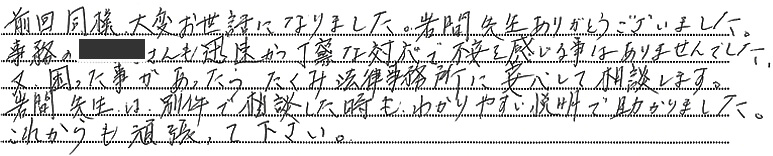 前回同様、大変お世話になりました。岩間先生ありがとうございました。
事務の さんも迅速かつ丁寧な対応で不安を感じる事はありませんでした。
又、困った事があったら たくみ法律事務所に安心して相談します。
岩間先生は、別件で相談した時も、わかりやすい説明で助かりました。
これからも頑張って下さい。